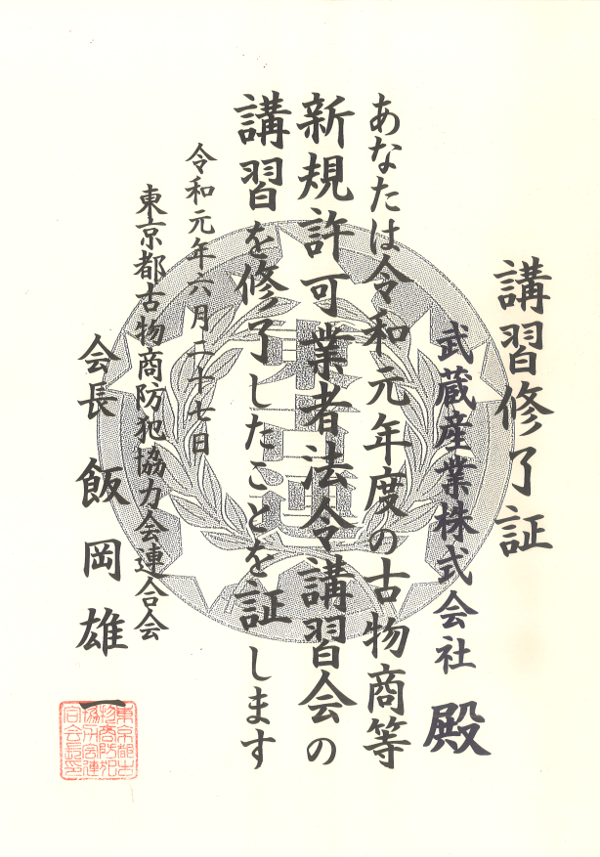 講習修了証
武蔵産業株式会社 殿
あなたは令和元年度の古物商等
新規許可業者法令講習会の
講習を修了したことを証します
令和元年六月二十七日
東京都古物商防犯協力会連合会
会長 飯岡雄一
東古連